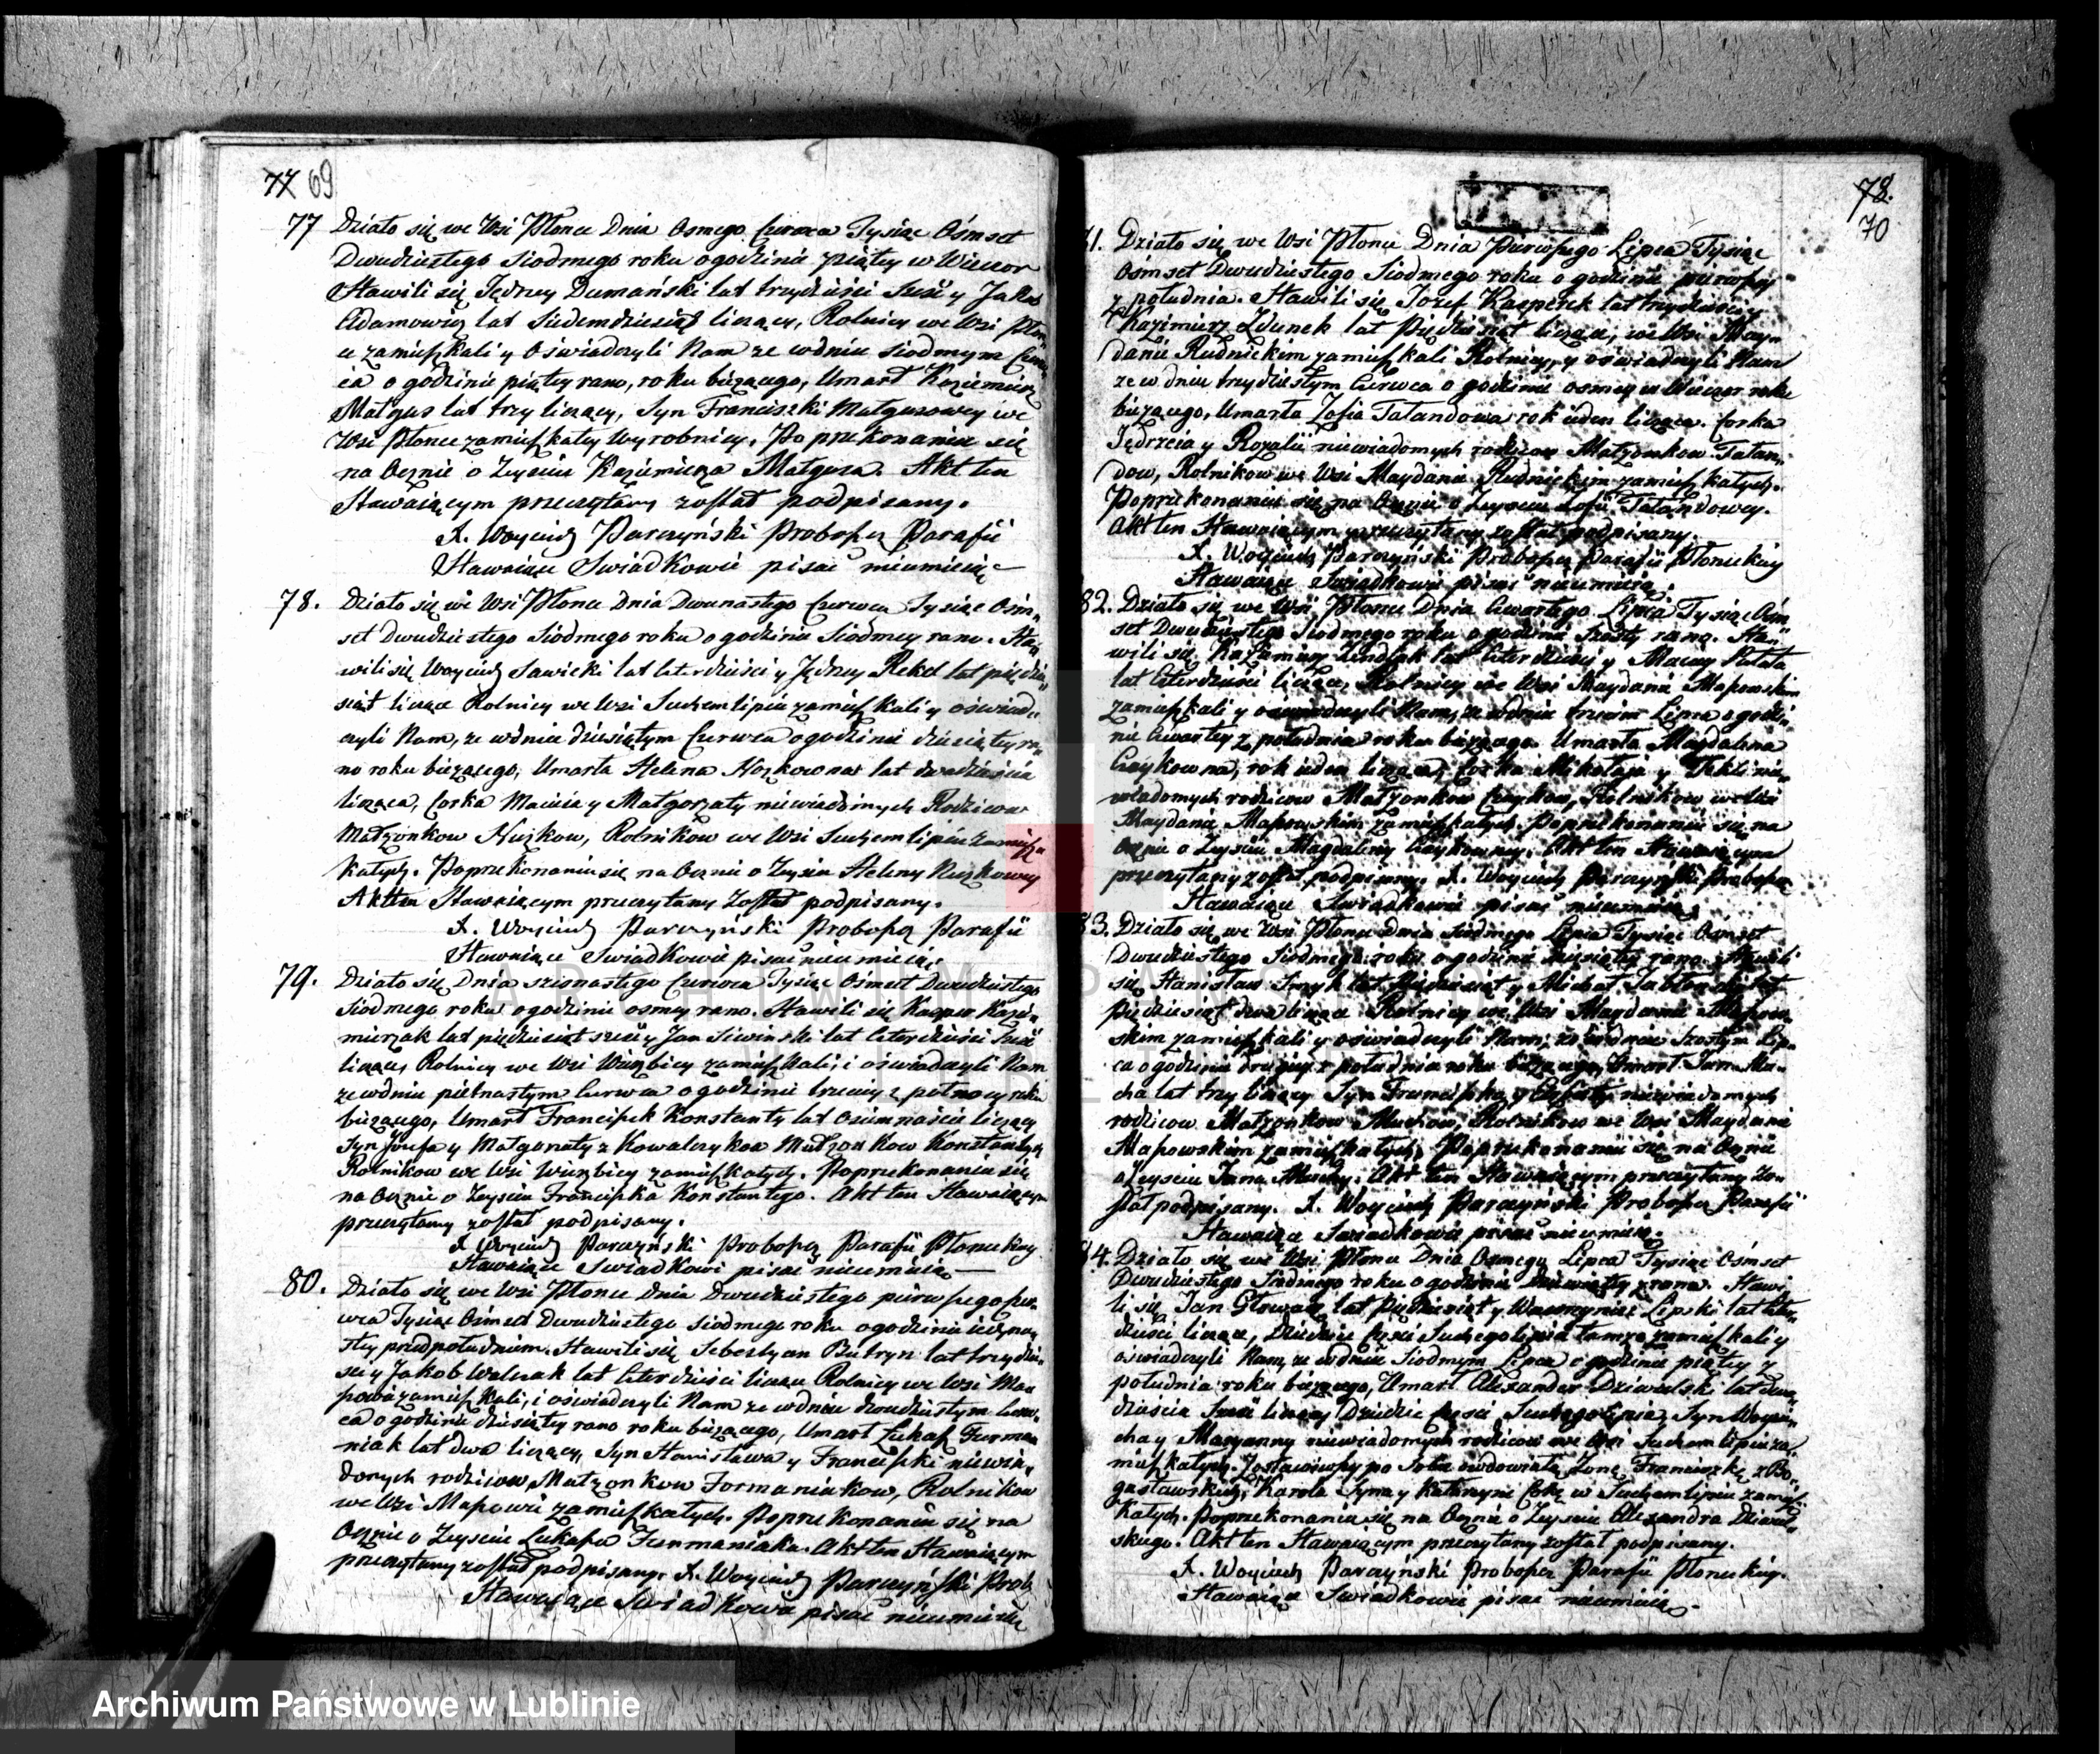 77 69
77 Działo się we Wsi Płonce Dnia Osmego Czerwca Tysiąc Ośmset
Dwudziestego Siodmego roku o godzinie piątey w Wieczor
Stawili się Jędrzey Dumański lat trzydzieści Sześć y Jakub
Adamowicz lat Siedemdziesiąt liczący, Rolnicy we Wsi Płon„
ce zamieszkali y Oświadczyli Nam ze w dniu Siodmym Czerw„
ca o godzinie piątey rano, roku bieżącego, Umarł Kazimierz
Małgus lat trzy liczący, Syn Franciszki Małgusowey we
Wsi Płonce zamieszkałey Wyrobnicy, Po przekonaniu się
na Ocznie o Zeyściu Kazimierza Małgusa. Akt ten
Stawaiącym przeczytany został podpisany.
X. Woyciech Parczyński Proboszcz Parafii
Stawaiące Swiadkowie pisać nieumieią
78. Działo się we Wsi Płonce Dnia Dwunastego Czerwca Tysiąc Ośm„
set Dwudziestego Siodmego roku o godzinie Siodmey rano. Sta„
wili się Woyciech Sawicki lat Czterdzieści y Jędrzey Rekel lat pięćdzie„
siąt liczące Rolnicy we Wsi Suchem lipiu zamieszkali y oświad„
czyli Nam, ze w dniu dziesiątym Czerwca o godzinie dziesiątey ra„
no roku bieżącego, Umarła Helena lat dwadzieścia
licząca, Corka Macieia y Małgorzaty niewiadomych Rodzicow
Małżonkow Rolnikow we Wsi Suchem lipiu zamiesz„
kałych. Po przekonaniu się na Ocznie o Zeyściu Heleny
Akt ten Stawaiącym przeczytany Został podpisany.
X. Woyciech Parczyński Proboszcz Parafii
Stawaiące Swiadkowie pisać nieumieią.
79. Działo się Dnia szesnastego Czerwca Tysiąc Ośmset Dwudziestego
Siodmego roku o godzinie osmey rano. Stawili się Kasper Kazi„
mierzak lat pięćdziesiąt sześć y Jan Siwinski lat Czterdzieści Sześć
liczący Rolnicy we Wsi Wierzbicy zamieszkali, i oświadczyli Nam
ze w dniu piętnastym Czerwca o godzinie trzeciey z połnocy roku
bieżącego, Umarł Franciszek Konstanty lat osiemnaście liczący
Syn Jozefa y Małgorzaty z Kowalczykow Małżonkow Konstantych
Rolnikow we Wsi Wierzbicy zamieszkałych. Po przekonaniu się
na Ocznie o Zeyściu Franciszka Konstantego. Akt ten Stawaiącym
przeczytany został podpisany.
X. Woyciech Parczyński Proboszcz Parafii Płonckiey
Stawaiące Swiadkowi pisać nieumieią
80. Działo się we Wsi Płonce Dnia Dwudziestego pierwszego Czer„
wca Tysiąc Ośmset Dwudziestego Siodmego roku o godzinie iedyna„
stey przed południem. Stawili się Sebestyan Butryn lat trzydzie„
ści y Jakob Walczak lat Czterdzieści liczące Rolnicy we Wsi Ma„
powie zamieszkali, i oświadczyli Nam ze w dniu dwudziestym Czerw„
ca o godzinie dziesiątey rano roku bieżącego, Umarł Łukasz Furma„
niak lat dwa liczący, Syn Stanisława y Franciszki niewia„
domych rodzicow, Małżonkow Formaniakow, Rolnikow
we Wsi Mapowie zamieszkałych. Po przekonaniu się na
Ocznie o Zeyściu Łukasza Furmaniaka. Akt ten Stawaiącym
przeczytany został podpisany. X. Woyciech Parczyński Prob.
Stawaiące Swiadkowie pisać nieumieią
78.
70
81. Działo się we Wsi Płonce Dnia Pierwszego Lipca Tysiąc
Ośmset Dwudziestego Siodmego roku o godzinie pierwszey
z południa. Stawili się Jozef Kasperek lat trzydzieści y
Kazimierz Zdunek lat Pięćdziesiąt liczące, we Wsi May„
danie Rudnickim zamieszkali Rolnicy, y oświadczyli Nam
ze w dniu trzydziestym Czerwca o godzinie osmey w Wieczor roku
bieżącego, Umarła Zofia Tatandowa rok ieden licząca. Corka
Jędrzeia y Rozalii niewiadomych rodzicow Małżonkow Tatan„
dow, Rolnikow we Wsi Maydanie Rudnickim zamieszkałych.
Po przekonaniu się na Ocznie o Zeyściu Zofii Tatandowey.
Akt ten Stawaiącym przeczytany został podpisany.
X. Woyciech Parczyński Proboszcz Parafii Płonckiey
Stawaiące Swiadkowie pisać nieumieią.
82. Działo się we Wsi Płonce Dnia Czwartego Lipca Tysiąc Ośm
set Dwudziestego Siodmego roku o godzinie Szostey rano. Sta„
wili się Kazimierz lat Czterdzieści y Maciey
lat Czterdzieści liczące, Rolnicy we Wsi Maydanie Mapowskim
zamieszkali y oswiadczyli Nam, ze w dniu trzecim Lipca o godzi„
nie Czwartey z południa roku bieżącego. Umarła Magdalena
Czaykowna, rok ieden licząca, Corka Mikołaja y Tekli nie„
wiadomych rodzicow Małżonkow Czaykow, Rolnikow we Wsi
Maydanie Mapowskim zamieszkałych. Po przekonaniu się na
Ocznie o Zeyściu Magdaleny Czaykowny. Akt ten Stawaiącym
przeczytany został podpisany. X. Woyciech Parczyński Proboszcz
Stawaiące Swiadkowie pisać nieumieią.
83. Działo się we Wsi Płonce Dnia Siodmego Lipca Tysiąc Ośmset
Dwudziestego Siodmego roku o godzinie dziesiątey rano. Stawili
się Stanisław lat Pięćdziesiąt y Michał lat
pięćdziesiąt dwa liczące Rolnicy we Wsi Maydanie Mapow„
skim zamieszkali y oświadczyli Nam, ze w dniu Szostym Lip„
ca o godzinie drugiey z południa roku bieżącego, Umarł Jan Mu„
cha lat trzy liczący Syn Franciszka y Agaty niewiadomych
rodzicow Małżonkow Muchow, Rolnikow we Wsi Maydanie
Mapowskim zamieszkałych, Po przekonaniu się na Ocznie
o Zeyściu Jana Muchy. Akt ten Stawaiącym przeczytany Zo„
stał podpisany. X. Woyciech Parczyński Proboszcz Parafii
Stawaiące Swiadkowie pisać nieumieią.
84. Działo się we Wsi Płonce Dnia Osmego Lipca Tysiąc Ośmset
Dwudziestego Siodmego roku o godzinie dziewiątey z rana. Stawi
li się Jan Głowacz lat Pięćdziesiąt y Wawrzyniec Lipski lat Czter„
dzieści liczące, Dziedzice Części Suchegolipia tamze zamieszkali y
oświadczyli Nam, ze w dniu Siodmym Lipca o godzinie piątey z
południa roku bieżącego, Umarł Alexander Dziewulski lat dwa„
dzieścia Sześć liczący Dziedzic Części Suchegolipia, Syn Woycie„
cha y Maryanny niewiadomych rodzicow we Wsi Suchem lipiu za„
mieszkałych. Zostawiwszy po Sobie owdowiałą Zonę Franciszkę z Bo„
gusławskich, Karola Syna y Katarzynę Corkę w Suchem lipiu zamiesz„
kałych. Po przekonaniu się na Ocznie o Zeyściu Alexandra Dziewul„
skiego. Akt ten Stawaiącym przeczytany został podpisany.
X. Woyciech Parczyński Proboszcz Parafii Płonckiey.
Stawaiące Swiadkowie pisać nieumieią.
Archiwum Państwowe w Lublinie